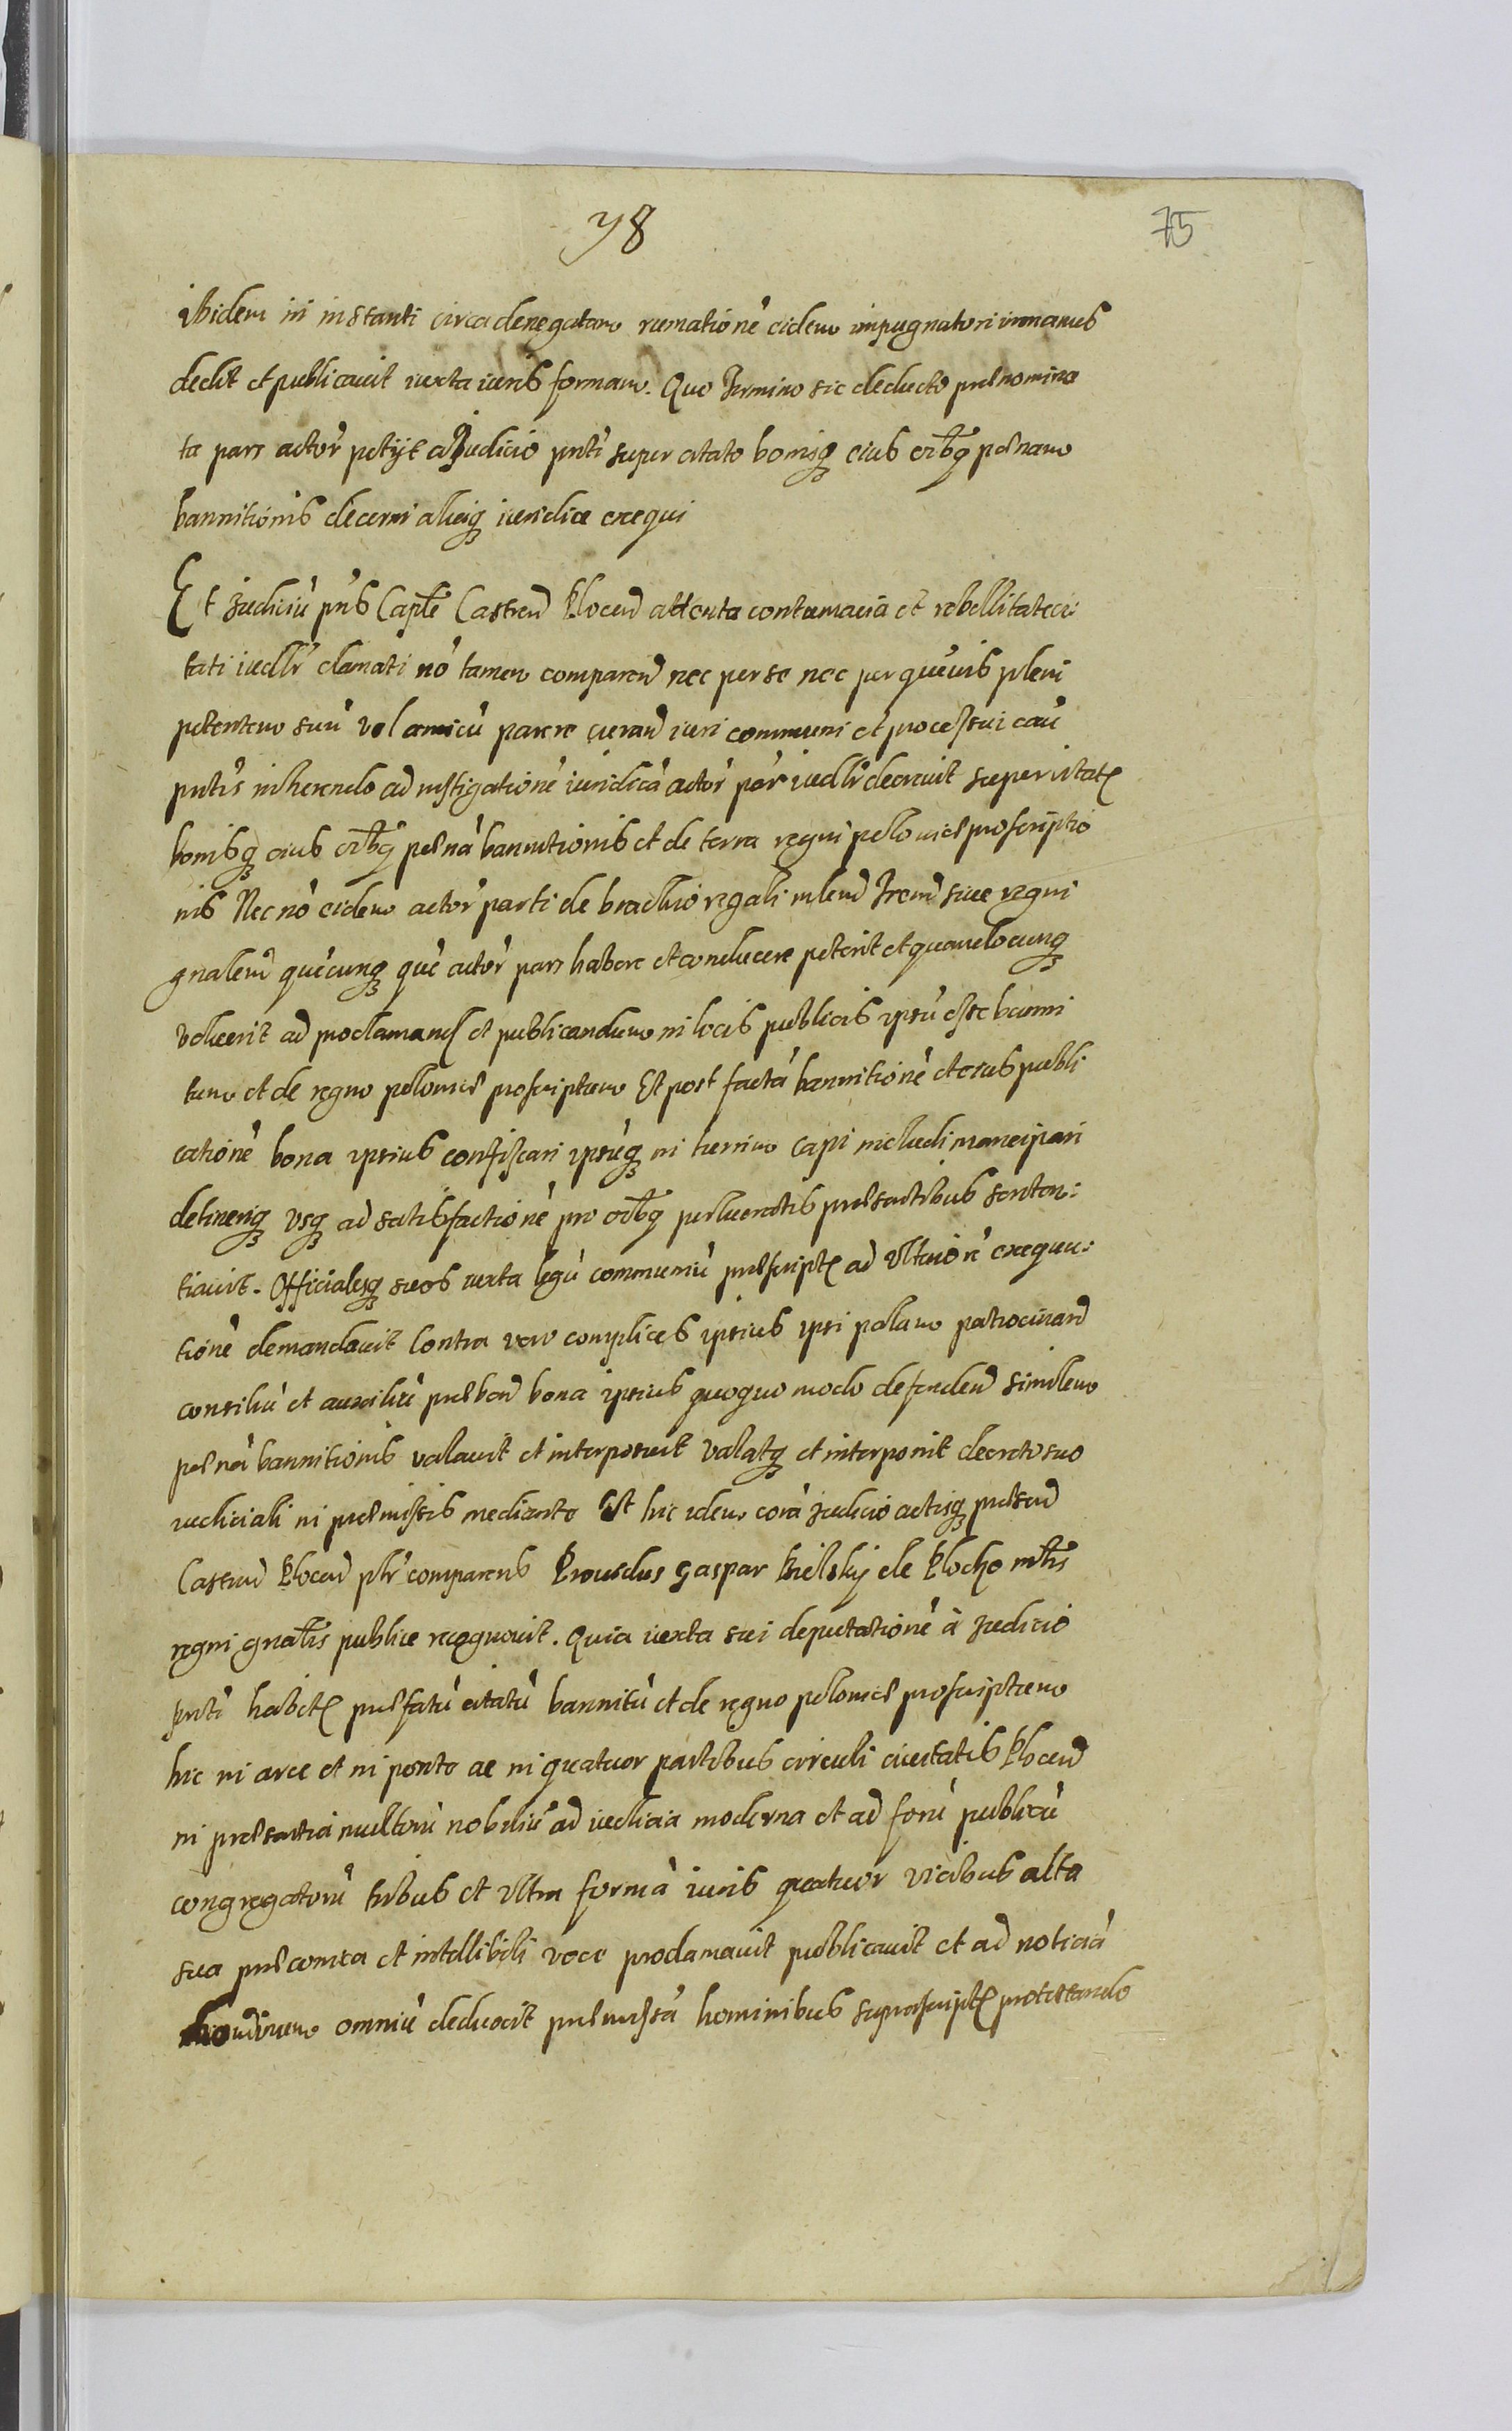 78
75
ibidem in instanti circa denegatam rumationẽ eidem impugnatori in manus
dedit et publicavit iuxta iuris formam. Quo Termino sic deducto prænomina
ta pars actor̃ petyt a Judicio pñti super citato bonisq eius oĩbq pœnam
bannitionis decerni aliasq iuridice exequi
Et Judiciũ pñs Capłe Castreñ Płoceñ attenta contumacia et rebellitate ci:
tati iudłr clamati nõ tamen compareñ nec per se nec per quẽvis pleni
potentem suũ vel amicũ parere curañ iuri communi et processui cau
pñtis inherendo ad instigationẽ iuridicã actor̃ par̃ iudłr decrevit super citato
bonisq eius oĩbq pœnã bannitionis et de terra regni poloniæ proscriptio
nis Nec nõ eidem actor̃ parti de brachio regali młem Treñ sive regni
gnalem quẽcunq quẽ actor̃ pars habere et conducere poterit et quandocunq
voluerit ad proclamand et publicandum in locis publicis ipsũ esse banni
tum et de regno poloniæ proscriptum Et post factã bannitionẽ et eius publi
cationẽ bona ipsius confiscari ipsũq in turrim capi includi mancipari
detineriq vsq ad satisfactionẽ pro oĩbq perlucratis præsentibus senten:
tiavit. Officialesq suos iuxta legũ communiũ præscripta ad vlteriorẽ exequu:
tionẽ demandavit Contra vero complices ipsius ipsi palam patrocinañ
consiliũ et auxiliũ præbeñ bona ipsius quoquo modo defendeñ similem
pœnã bannitionis valavit et interposuit valatq et interponit decreto suo
iudiciali in præmissis mediante Et hic idem corã Judicio actisq præsent
Castreñ Płoceñ płr comparens Providus Gaspar Bielsky de Płocko mĩstr
regni gnałis publice recognovit. Quia iuxta sui deputationẽ à Judicio
pñti habitã præfatũ citatũ bannitũ et de regno poloniæ proscriptum
hic in arce et in ponte ac in quatuor partibus circuli civitatis Płoceñ
in præsentia multorũ nobiliũ ad iudicia moderna et ad forũ publicũ
congregatorũ tribus et vltra formã iuris quatuor vicibus alta
sua præconica et intellibili voce proclamavit publicavit et ad noticiã
omniũ deduxit præmissa hominibus suprascripta protestando